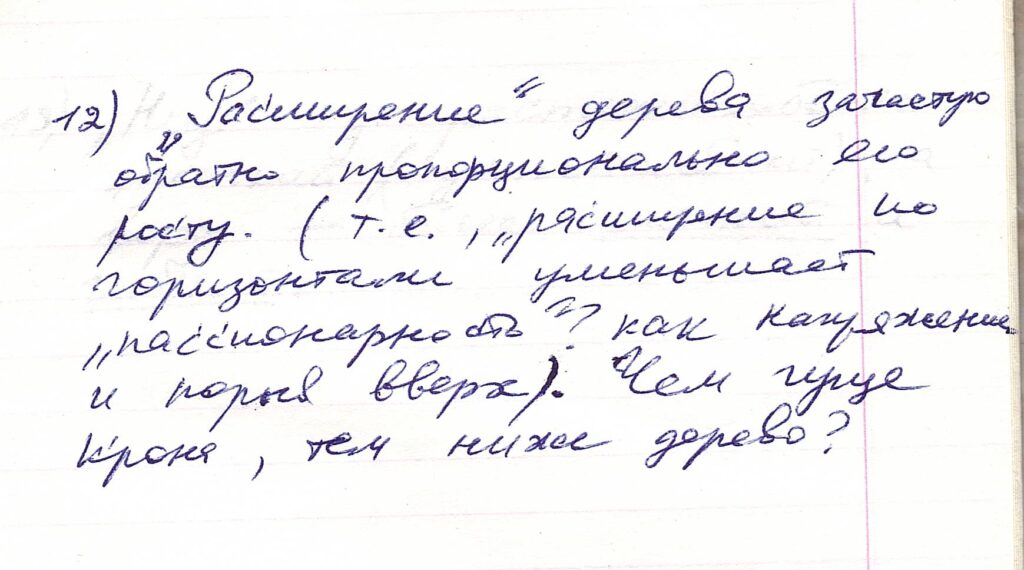 12) „Расширение" дерева зачастую
обратно пропорционально его
росту. (т.е., „расширение по
горизонтали уменьшает
„пассионарность"? как напряжение
и порыв вверх). Чем гуще
крона, тем ниже дерево?